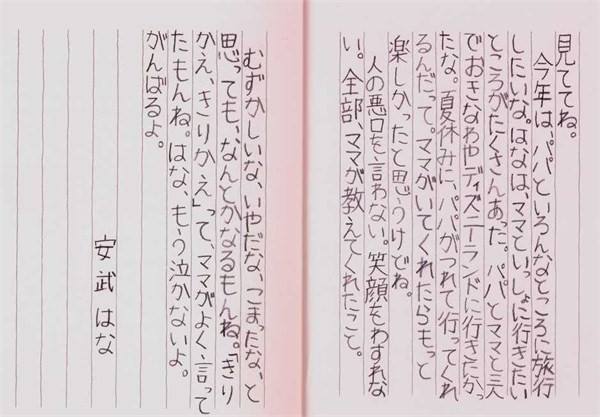 見ててね。
　今年は、パパといろんなところに旅行
したいな。はなは、ママといっしょに行きたい
ところがたくさんあった。パパとママと三人
でおきなわやディズニーランドに行きたかっ
たな。夏休みに、パパがつれて行ってくれ
るんだって。ママがいてくれたらもっと
楽しかったと思うけどね。
　人の悪口を言わない。笑顔をわすれな
い。全部、ママが教えてくれたこと。
　むずかしいな、いやだな、こまったな、と
思っても、なんとかなるもんね。「きり
かえ、きりかえ」って、ママがよく、言って
たもんね。はな、もう泣かないよ。
がんばるよ。
安武はな